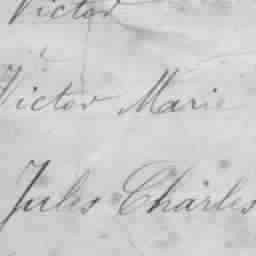 Victor
Victor Marie
Jules Charles